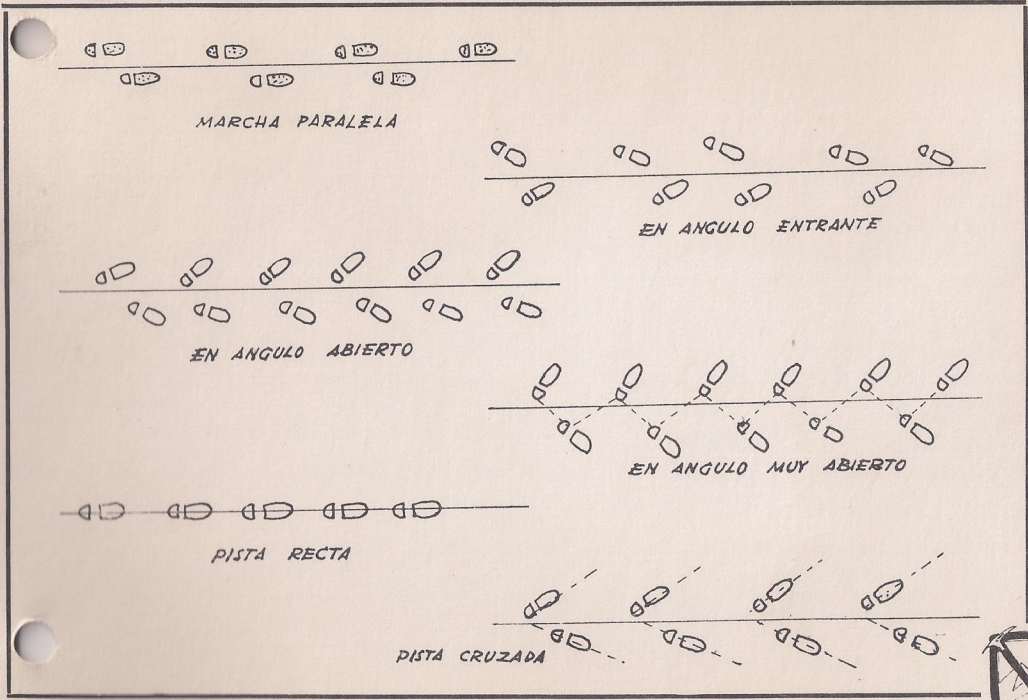 MARCHA PARALELA
EN ANGULO ENTRANTE
EN ANGULO ABIERTO
EN ANGULO MUY ABIERTO
PISTA RECTA
PISTA CRUZADA